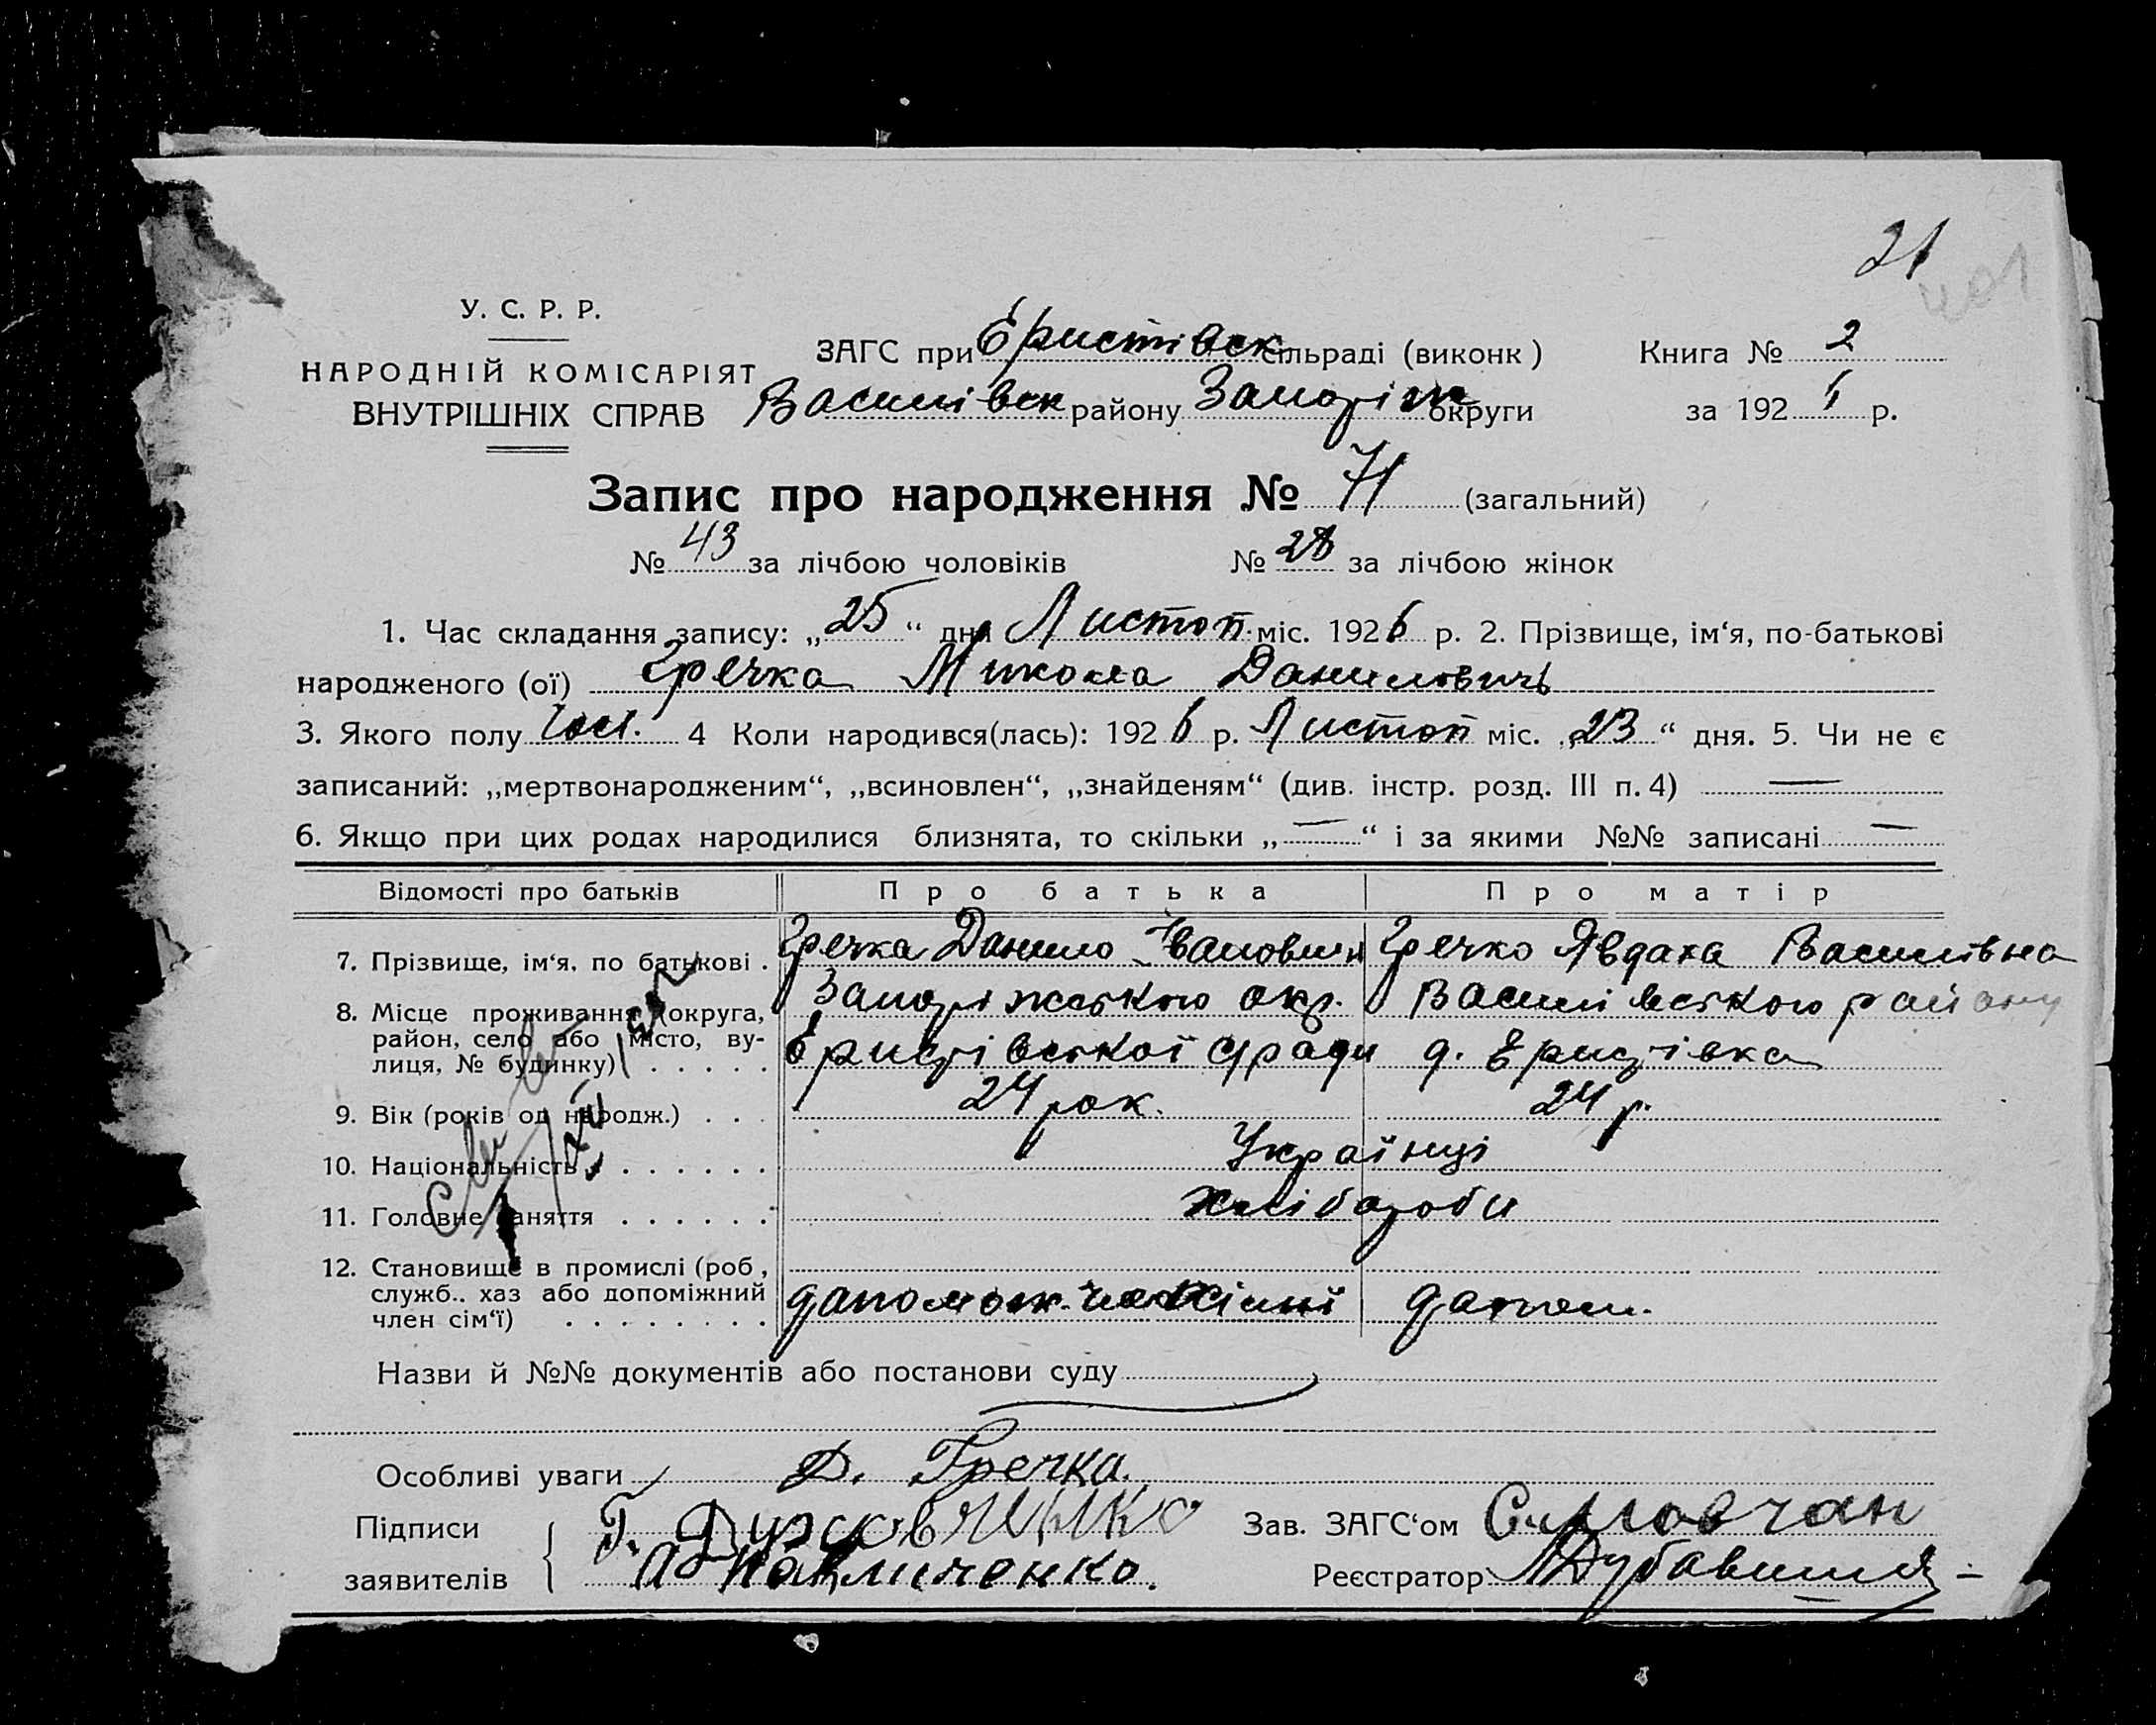 21
У. С. Р. Р.
НАРОДНІЙ КОМІСАРІЯТ
ВНУТРІШНІХ СПРАВ
ЗАГС при Єристівск сільраді (виконк)
Василівск району Запоріж округи
Книга № 2
за 192 6 р.
Запис про народження № 71 (загальний)
№ 43 за лічбою чоловіків № 28 за лічбою жінок
1. Час складання запису: „25“ дня Листоп. міс. 1926 р. 2. Прізвище, ім‘я, по-батькові
народженого (ої) Гречка Микола Данилович
3. Якого полу Чол. 4 Коли народився(лась): 1926 р. Листоп міс. „23“ дня. 5. Чи не є
записаний: „мертвонародженим“, „всиновлен“, „знайденям“ (див. інстр. розд. III п. 4) —
6. Якщо при цих родах народилися близнята, то скільки „—“ і за якими №№ записані —
Відомості про батьків Про батька Про матір
7. Прізвище, ім‘я, по батькові . Гречка Данило Івановит Гречко Явдаха Василівна
8. Місце проживання (округа, Запоріжського окр. Василівського району
район, село або місто, ву-
лиця, № будинку) . . . . . Єристівської с/ради д. Єристівка
9. Вік (років од народж.) . . . 24 рок. 24 р.
10. Національність . . . . . . . Українці
11. Головне заняття . . . . . . Хлібороби
12. Становище в промислі (роб,
служб.. хаз або допоміжний
член сім‘ї) . . . . . . . . дапомож. дапом.
Назви й №№ документів або постанови суду
Особливі уваги Д. Гречка.
Підписи
заявителів
Зав. ЗАГС‘ом С. Мовчан
Реєстратор